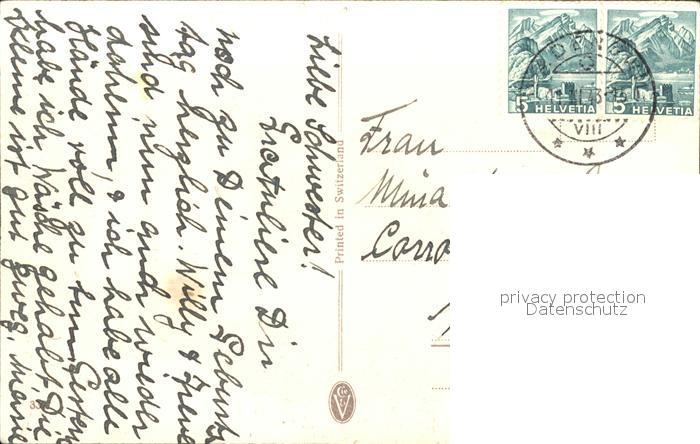 Liebe Schwester!
Gratuliere Dir
noch zu Deinem Geburts
tag herzlich. Willy & Irene
sind nun auch wieder
daheim, & ich habe alle
Hände voll zu tun. Gestern
habe ich Wäsche gehabt. Die
Kleine ist gut zweg. Marie
Printed in Switzerland
5 HELVETIA
5 HELVETIA
VIII
Frau
Mina
Corro
privacy protection
Datenschutz